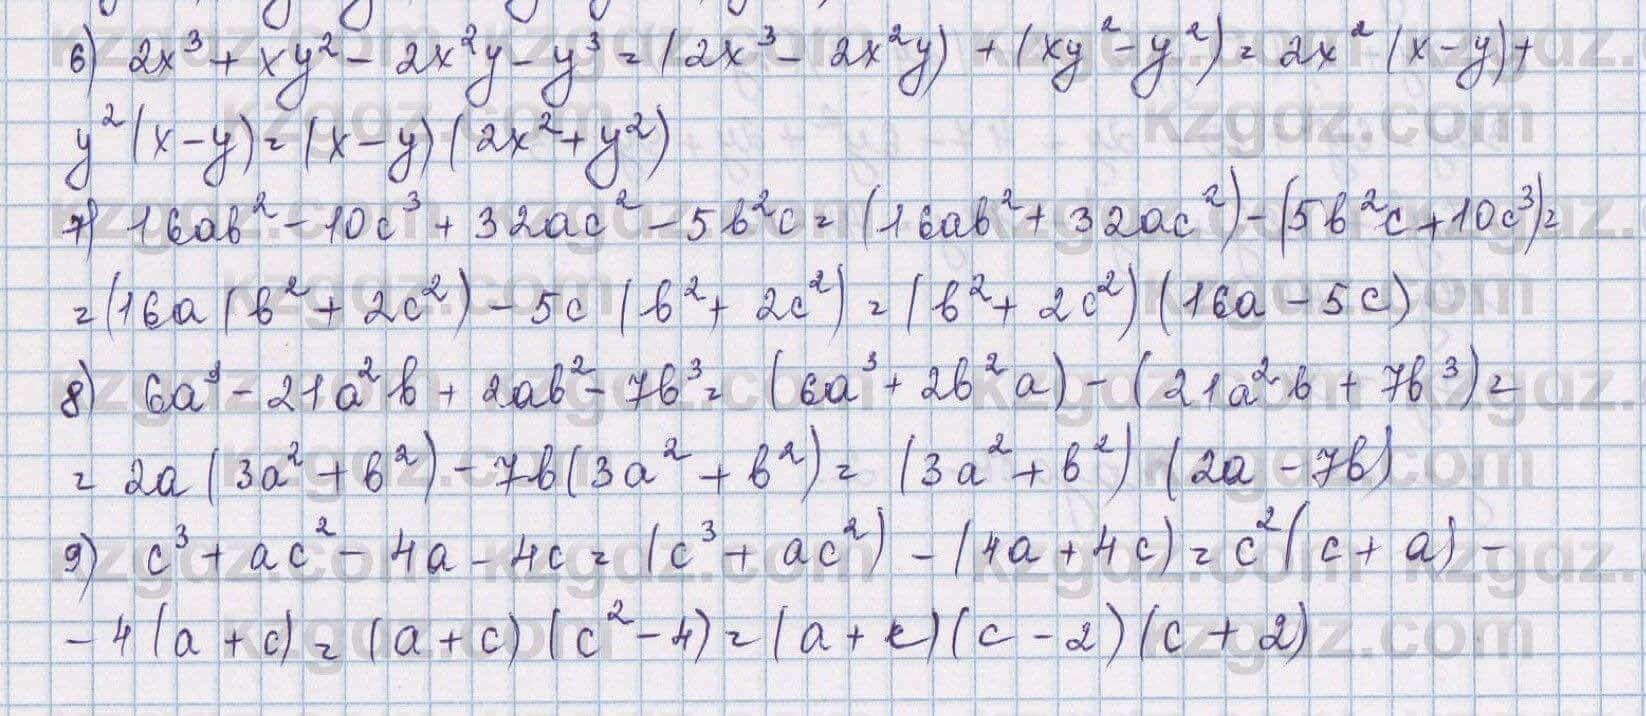 6) 2x³ + xy² - 2x²y - y³ = (2x³ - 2x²y) + (xy² - y²) = 2x² (x - y) +
y² (x - y) = (x - y) (2x² + y²)
7) 16ab² - 10c³ + 32ac² - 5b²c = (16ab² + 32ac²) - (5b²c + 10c³) =
= (16a (b² + 2c²) - 5c (b² + 2c²) = (b² + 2c²) (16a - 5c)
8) 6a³ - 21a²b + 2ab² - 7b³ = (6a³ + 2b²a) - (21a²b + 7b³) =
= 2a (3a² + b²) - 7b (3a² + b²) = (3a² + b²) (2a - 7b)
9) c³ + ac² - 4a - 4c = (c³ + ac²) - (4a + 4c) = c² (c + a) -
- 4 (a + c) = (a + c) (c² - 4) = (a + c) (c - 2) (c + 2)